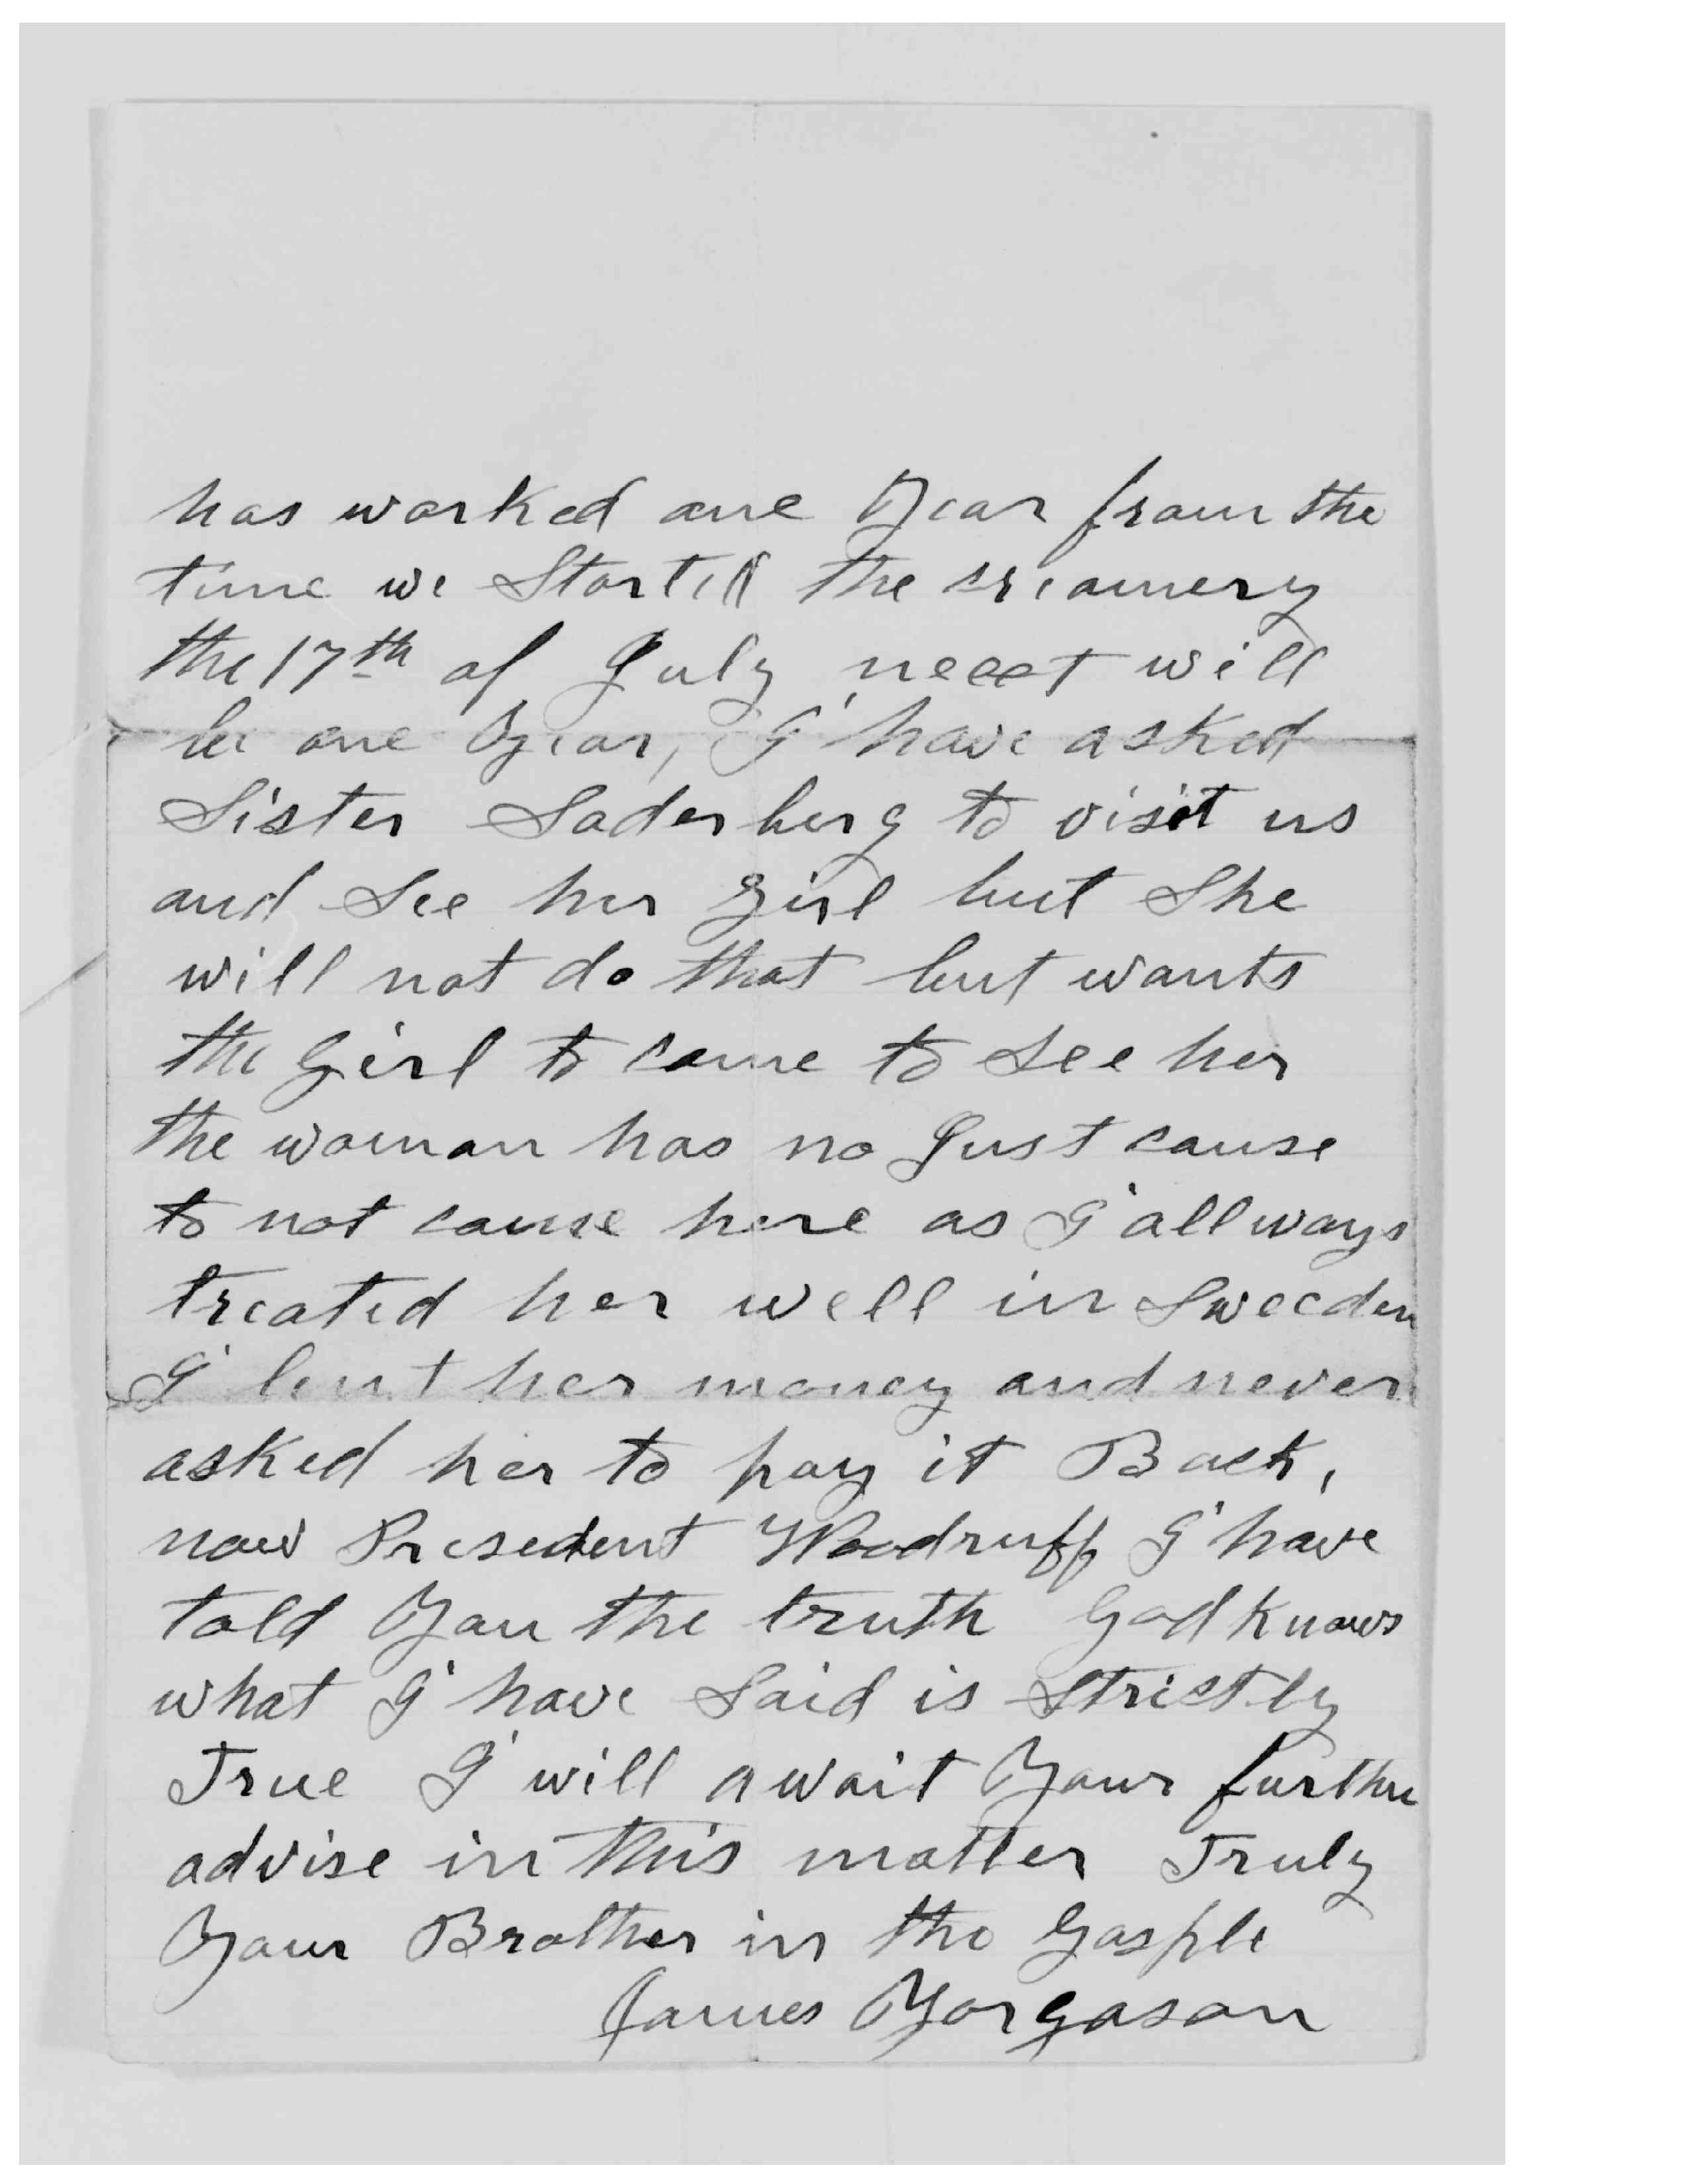 has worked one Year from the
time we Started the creamery
the 17th of July next will
be one Year, I have asked
Sister Soderberg to visit us
and See her Girl but She
will not do that but wants
the Girl to come to See her
the woman has no Just cause
to not come here as I allways
treated her well in Sweeden
I lent her money and never
asked her to pay it Back,
now Presedent Woodruff I have
told You the truth God Knows
what I have Said is Strictly
True I will await Your further
advise in this matter Truly
Your Brother in the Gosple
James Yorgason